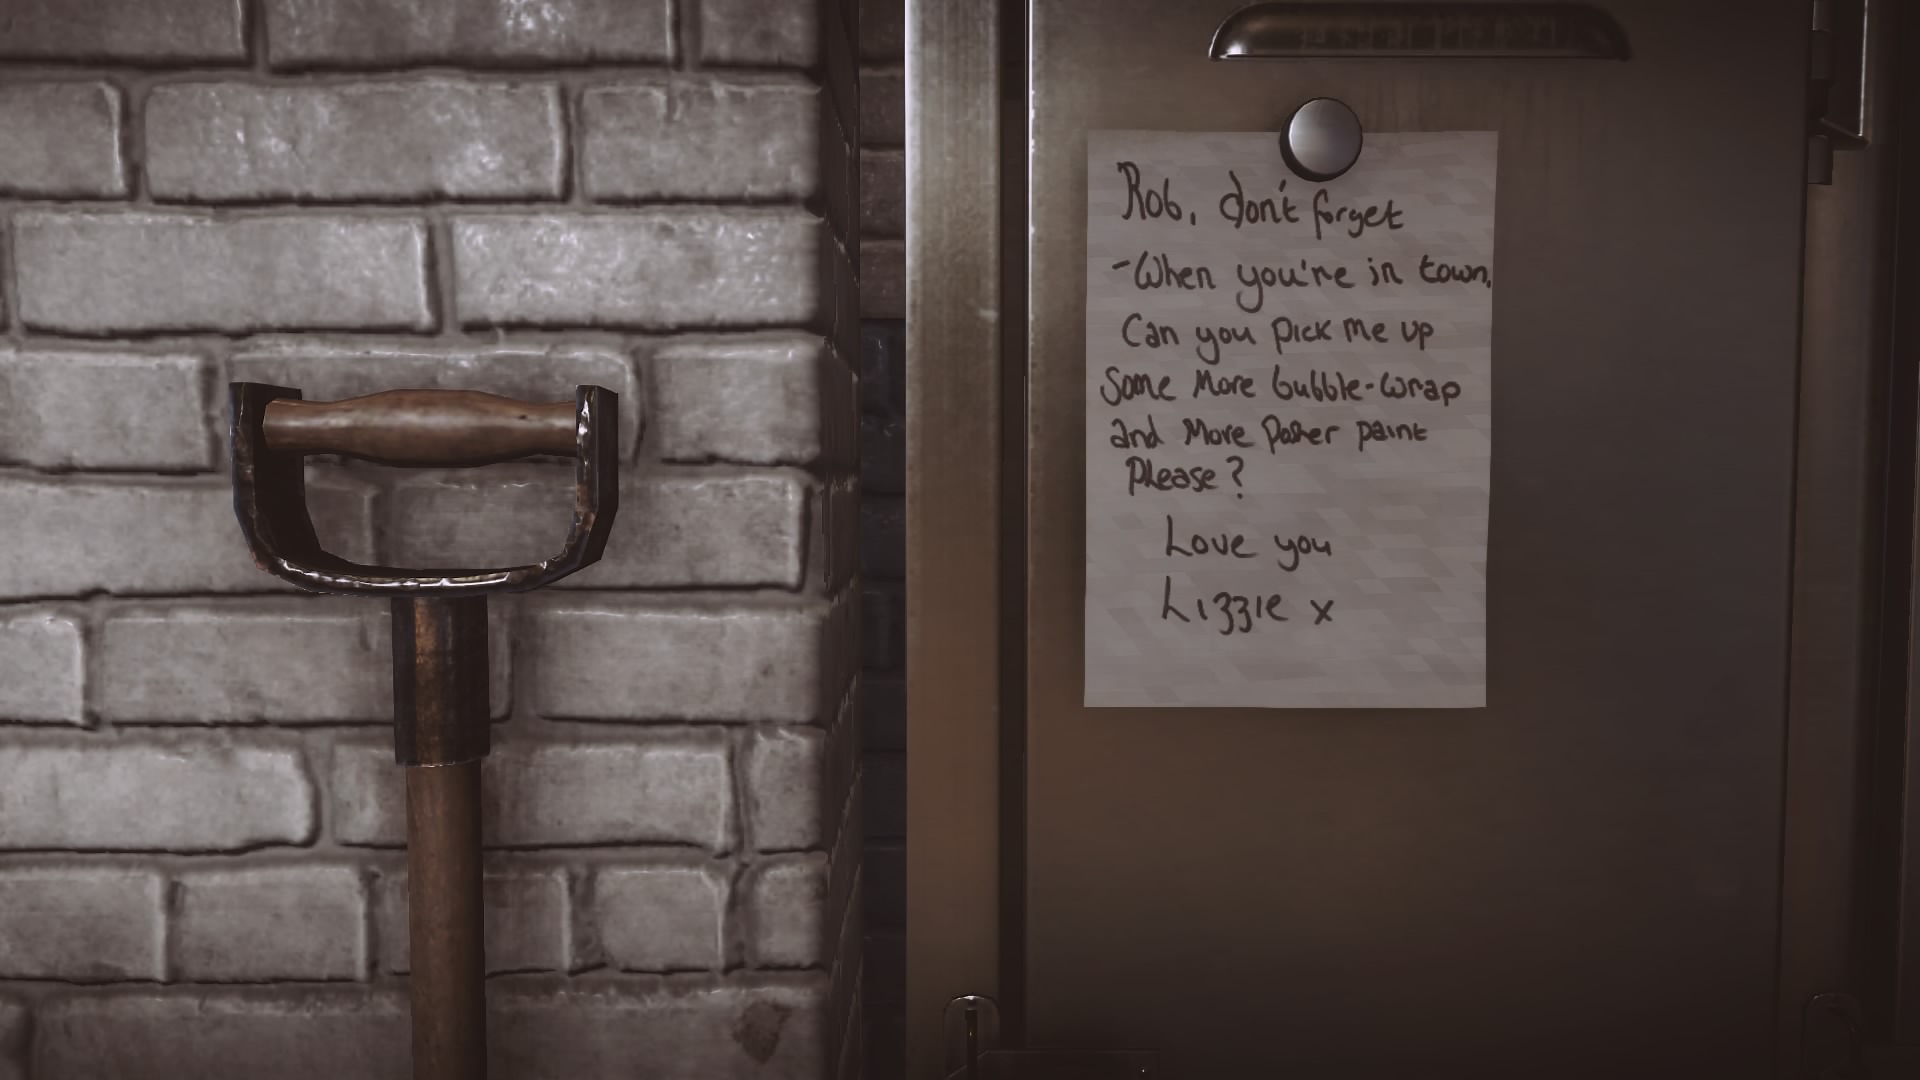 Rob, don't forget
-When you're in town,
Can you pick me up
Some More bubble-wrap
and More Poster paint
Please?
Love you
Lizzie x